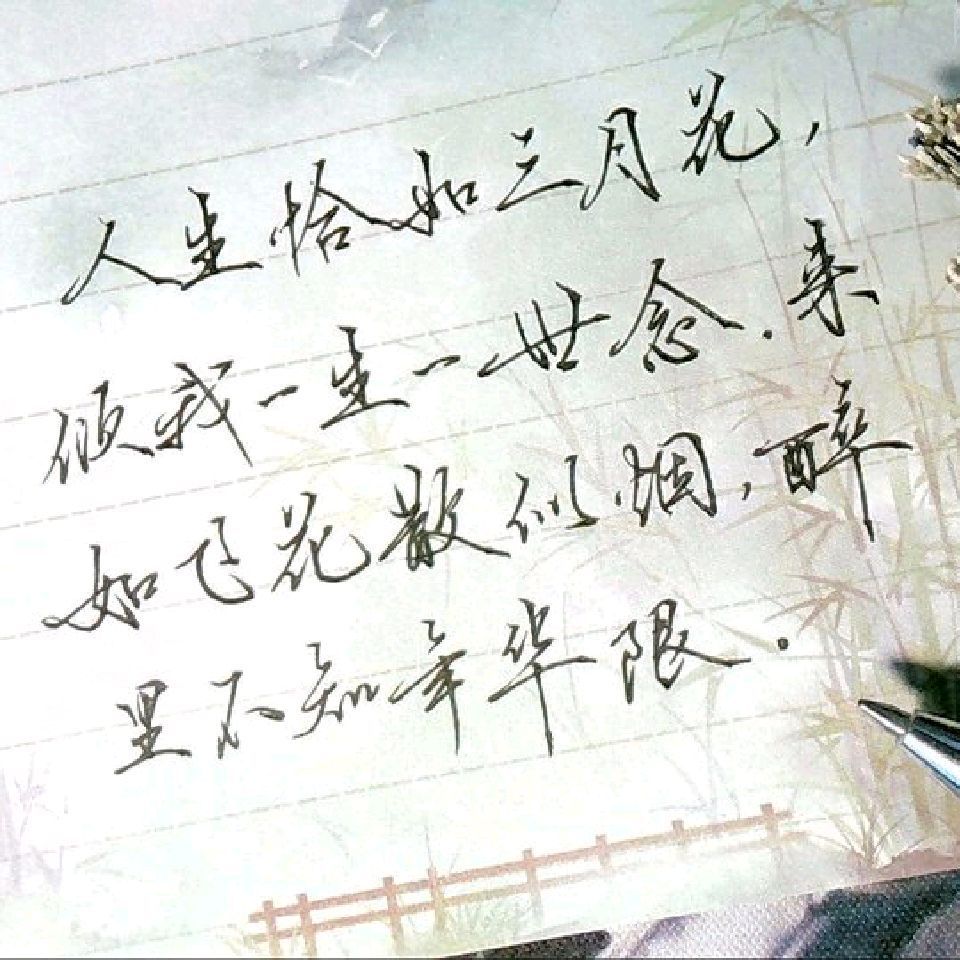 人生恰如三月花,
倾我一生一世念.来
如飞花散似烟,醉
里不知年华限.